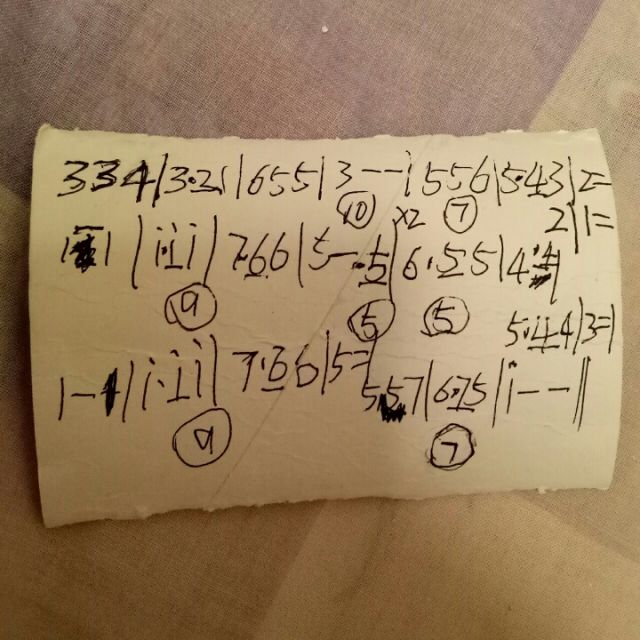 334|3·21|655|3--i|556|5·43|2=
⑩ x2 ⑦ 2|1=
1 1|i·i i|7·66|5-·5|6·55|4·4
⑨ ⑤ ⑤ 5·44|3=|
1-1|i·i i|7·66|5=|557|6·75|i--||
⑨ ⑦